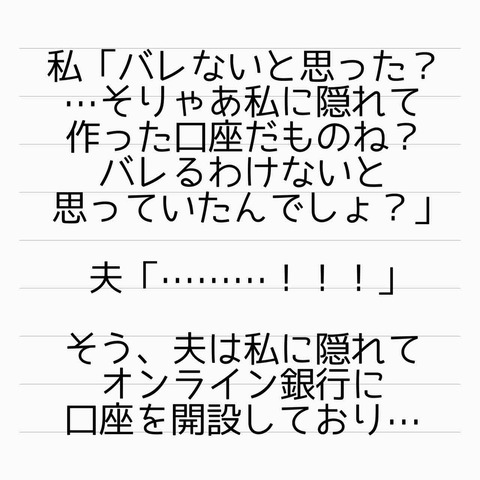 私「バレないと思った？
…そりゃあ私に隠れて
作った口座だものね？
バレるわけないと
思っていたんでしょ？」
夫「………！！！」
そう、夫は私に隠れて
オンライン銀行に
口座を開設しており…